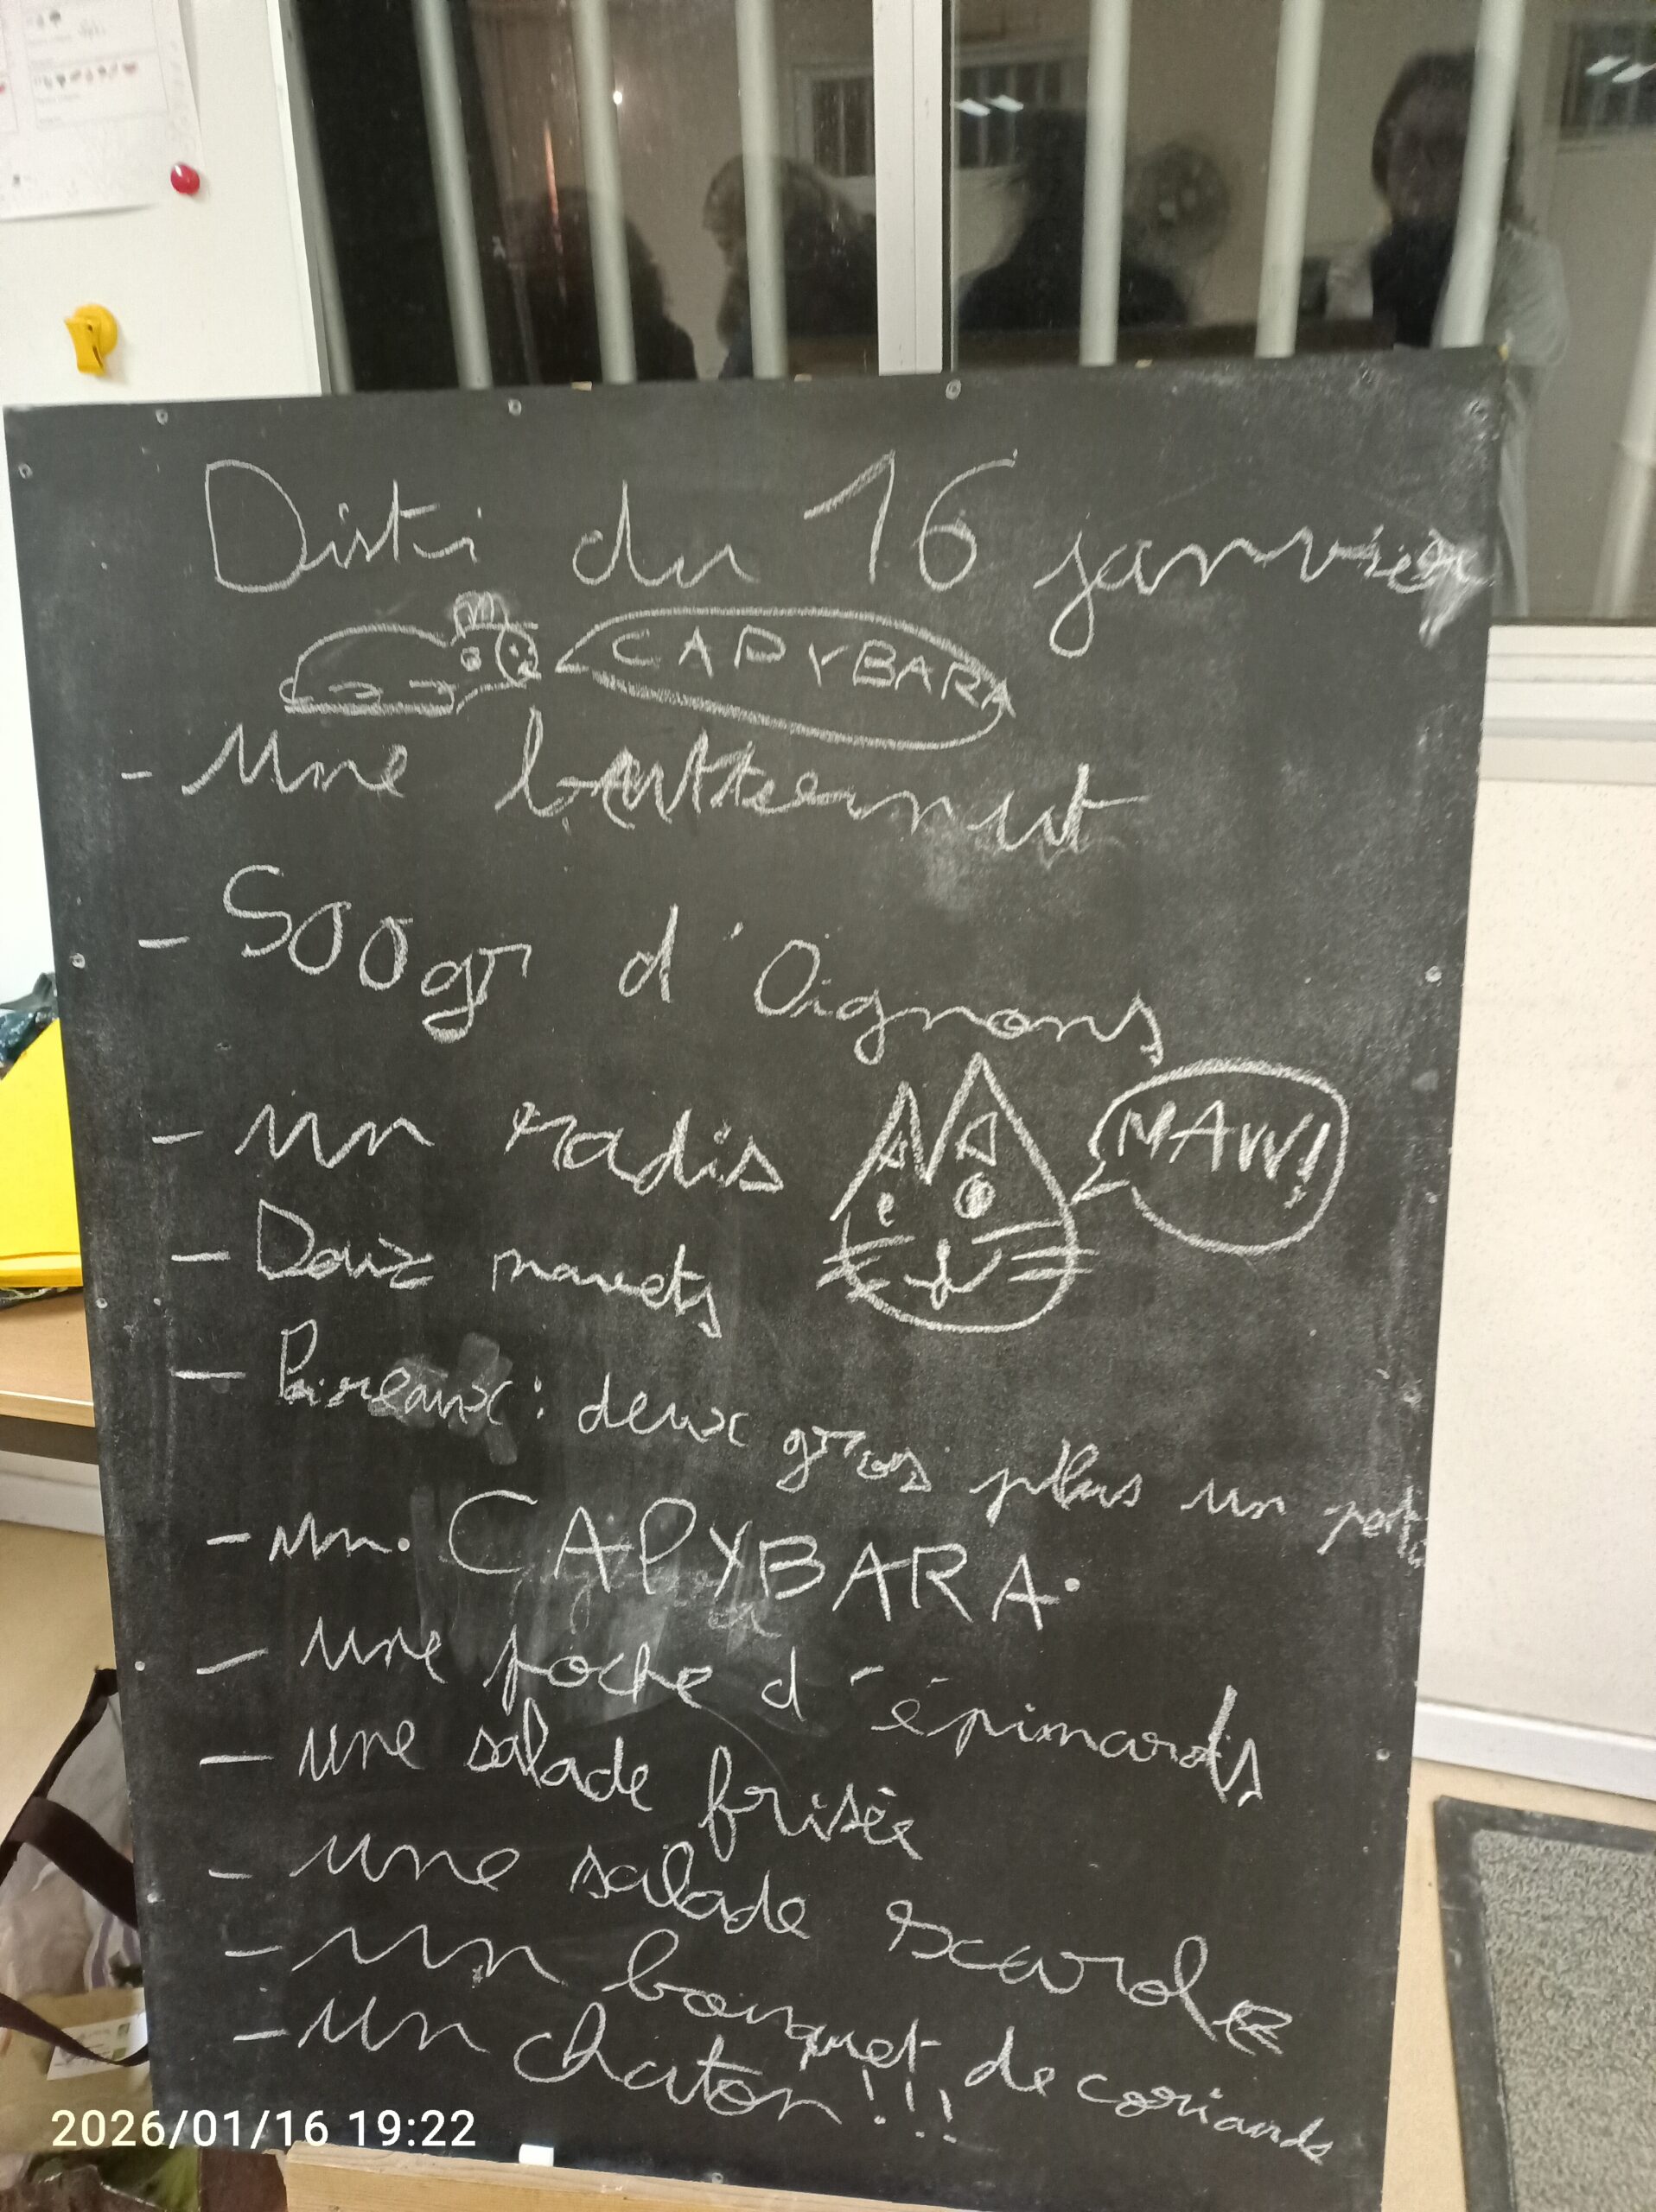 Distri du 16 janvier
CAPYBARA
- une butternut
- 500gr d'Oignons
- un radis
MAW!
- Douz navets
- Poireaux : deux gros plus un petit
- un. CAPYBARA.
- une poche d'épinards
- une salade frisée
- une salade scarole
- un bouquet de coriande
- un chaton!!!
2026/01/16 19:22